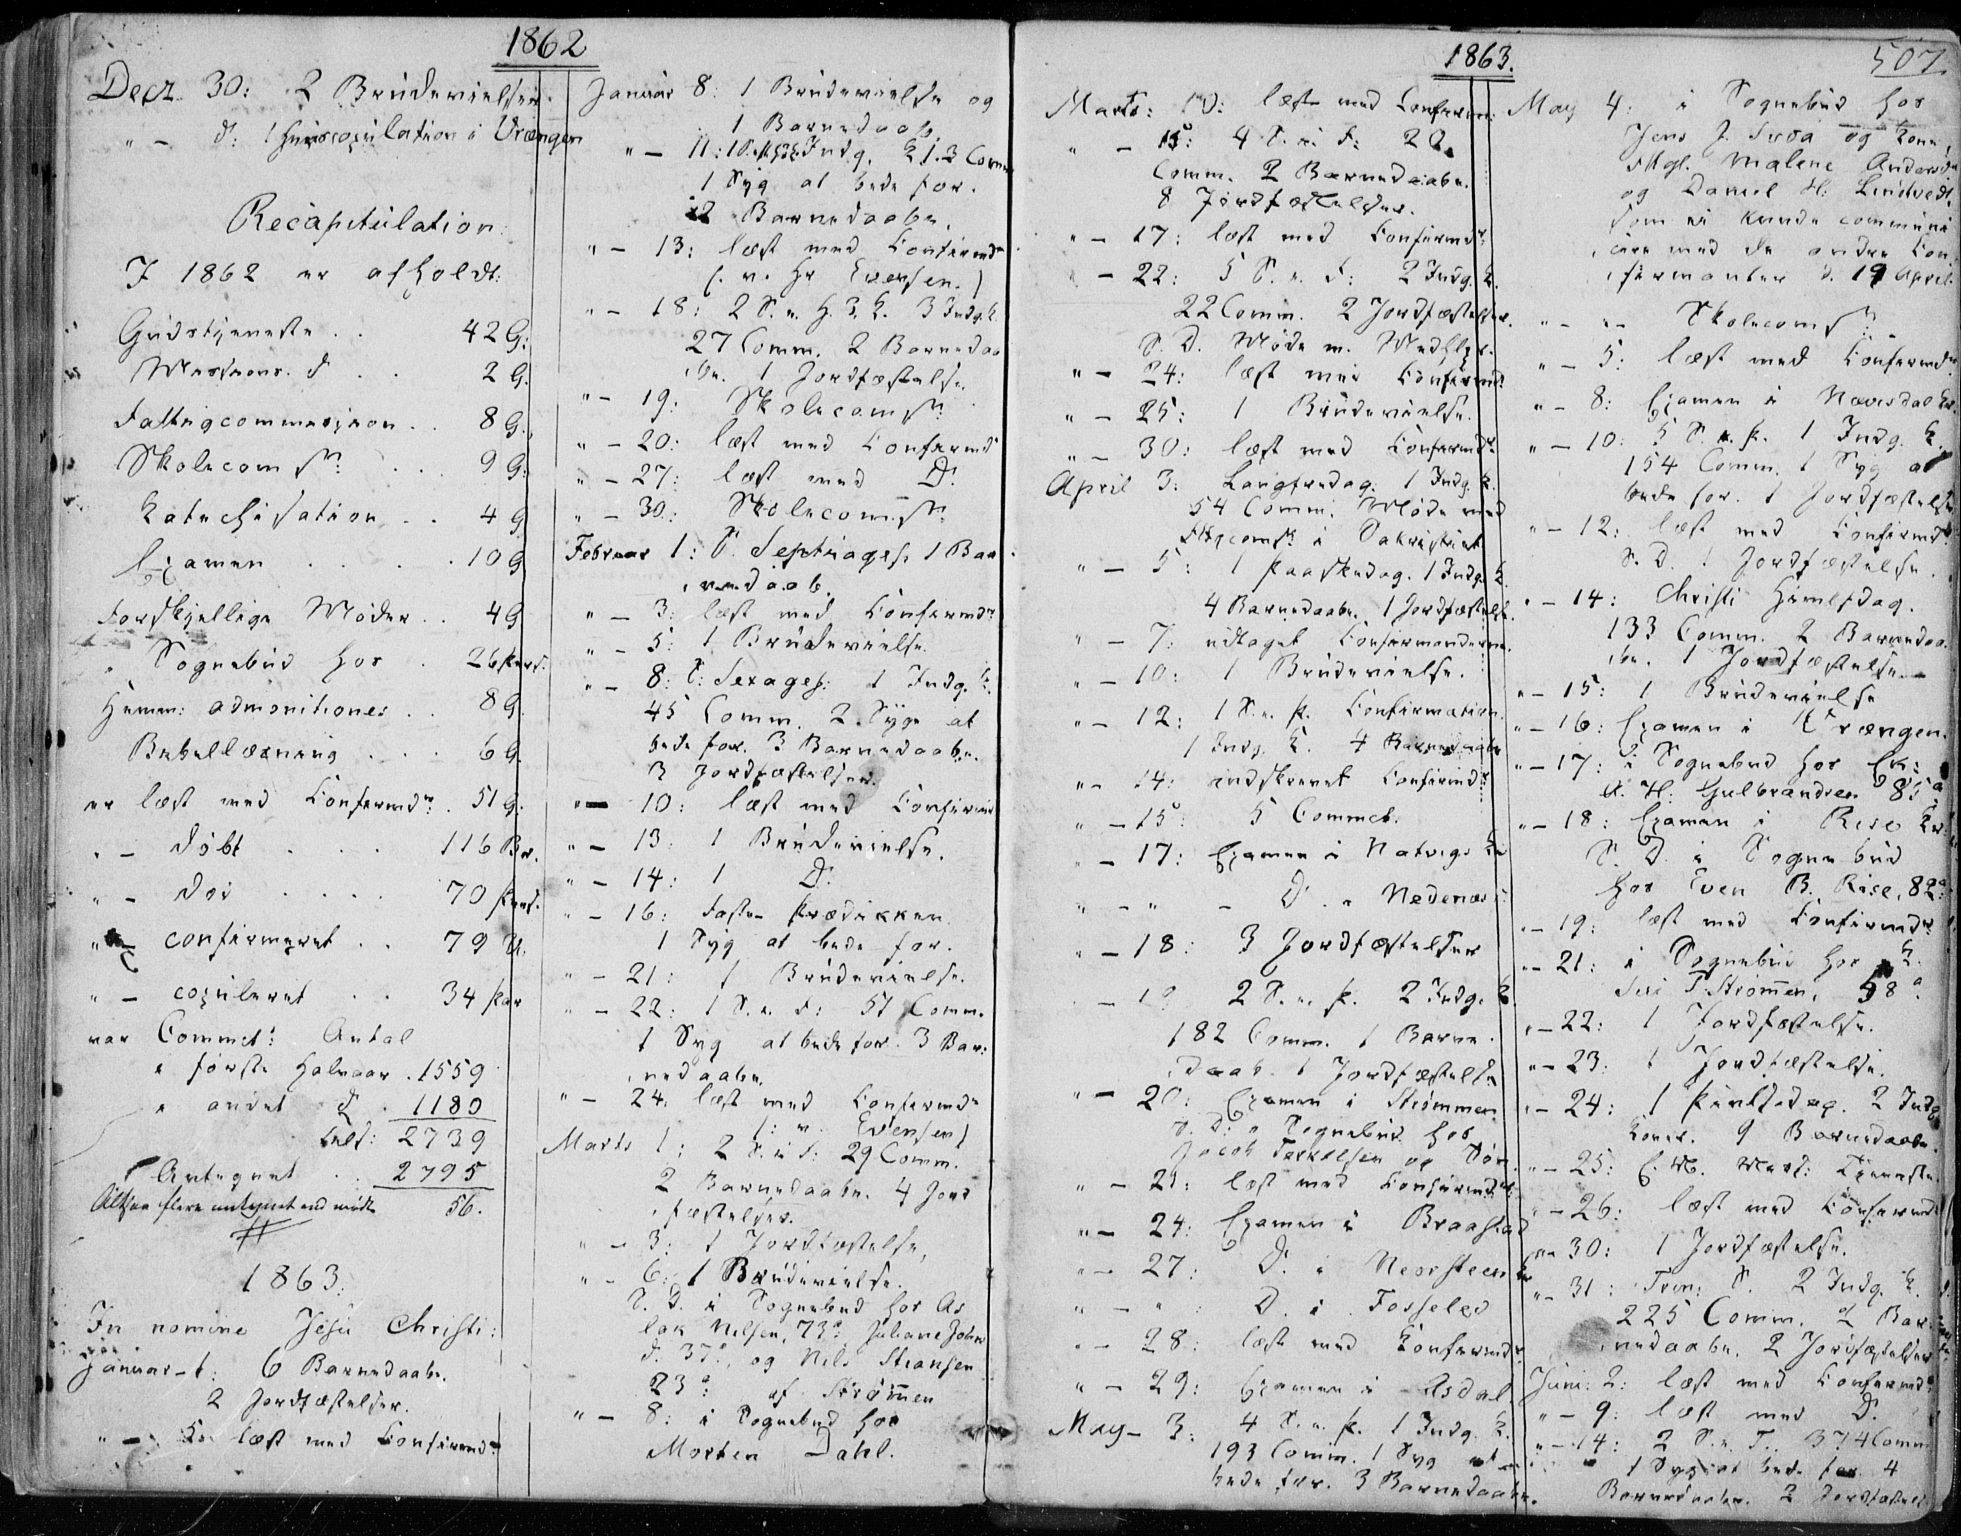 1862
Decr. 30: 2 Brudevielser.
" – d: 1 Huuscopulation i Vrængen
Recapitulation.
I 1862 er afholdt:
Gudstjeneste . . 42 G:
Missions. d . . 2 G.
Fattigcommission . . 8 G.
Skolecomsn: . . . 9 G.
Katechisation . . 4 G
Examen . . . . 10 G
Forskjellige Møder . . 4 G
i Sognebud hos . 26 Pers:
Hemm: admonitiones . . 8 G.
Bibellæsning . . . 6 G.
er læst med Confirmdr: . 51 G.
" – døbt . . . 116 Br.
" – død . . . . 70 Pers.
" – confirmeret . . 79 U.
" – copuleret . . 34 Par
var Commct: Antal
i første Halvaar . 1559
i andet d . 1180
tils: 2739
Antegnet . . 2795
Altsaa flere antegnet end mødt 56.
1863.
In nomine Jesu Christi:
Januar – 1: 6 Barnedaabe.
2 Jordfæstelser.
" – læst med Confirmdr
Januar 8: 1 Brudevielse og
1 Barnedaab.
" – 11: 1 Indg. K. Comm
1 Syg at bede for.
2 Barnedaabe.
" – 13: læst med Confirmdr
(: v. Hr Evensen.)
" – 18: 2 S. e. H. 3. K. 3 Indg. K.
27 Comm. 2 Barnedaa
be. 1 Jordfæstelse.
" – 19: Skolecomsn:
" – 20: læst med Confirmdr
" – 27: læst med D:
" – 30: Skolecomsn:
Februar 1: S. Septuages. 1 Bar
nedaab.
" – 3: læst med Confirmdr
" – 5: 1 Brudevielse.
" – 8: S: Sexages: 1 Indg. K.
45 Comm. 2 Syge at
bede for. 3 Barnedaabe.
3 Jordfæstelser.
" – 10: læst med Confirmd
" – 13: 1 Brudevielse.
" – 14: 1 D:
" – 16: Faste Prædikken
1 Syg at bede for.
" – 21: 1 Brudevielse.
" – 22: 1 S. i F: 51 Comm.
1 Syg at bede for. 3 Bar:
nedaabe.
" – 24. læst med Confirmdr
(: v. Evensen)
Marts 1: 2 S. i F: 29 Comm.
2 Barnedaabe. 4 Jord
fæstelser.
" – 3: 1 Jordfæstelse,
" – 6: 1 Brudevielse.
S. D. i Sognebud hos As
lak Nilsen, 73a. Juliane Johns
d. 37a., og Nils Stiansen
23a: af Strømmen
" – 8: i Sognebud hos
Morten Dahl.
1863.
507
Marts: 10: læst med Confirm:
" – 15: 4 S. i F: 22
Comm. 2 Barnedaabe.
8 Jordfæstelser.
" – 17: læst med Confirmdr:
" – 22: 5 S. i F: 2 Indg. K.
22 Comm. 2 Jordfæstelser.
S. D. Møde m. Medhlpr.
" – 24: læst med Confirmd:
" – 25: 1 Brudevielse.
" – 30: læst med Confirmdr.
April 3: Langfredag. 1 Indg. K.
54 Comm. Møde med
comsn: i Sakristiet
" – 5: 1 Paaskedag. 1 Indg. K.
4 Barnedaabe. 1 Jordfæstelse.
" – 7: udtaget Confirmanderne.
" – 10: 1 Brudevielse.
" – 12: 1 S. e. P. Confirmation.
1 Indg. K. 4 Barnedaabe
" – 14: indskrevet Confirmdr
" – 15: 5 Commct.
" – 17: Examen i Natvigs Kr
" – " – D. i Nedenæs
" – 18: 3 Jordfæstelser
" – 19 2 S. e. P. 2 Indg. K.
182 Comm. 1 Barne
daab. 1 Jordfæstelse
" – 20: Examen i Strømmen
S. D: i Sognebud hos
Jacob Terkelsen og Søn.
" – 21: læst med Confirmdr:
" – 24: Examen i Braastad
" – 27: D. i Neersteen Kr
" – " : D. i Fosselod
" – 28: læst med Confirmdr
" – 29: Examen i Asdal.
May – 3: 4 S. e. P. 1 Indg. K.
193 Comm. 1 Syg at
bede for. 3 Barnedaabe.
May 4: i Sognebud hos
Jens J. og Kone,
Malene Andersd
og Daniel H.
som ei kunde communi
cere med de andre Con
firmanter d. 19 April.
" – " Skolecomsn:
" – 5: læst med Confirmdr
" – 8: Examen i Næsdal Kr.
" – 10: 5 S. e. P. 1 Indg. K.
154 Comm. 1 Syg at
bede for. 1 Jordfæstelse
" – 12: læst med Confirmdr
S. D. 1 Jordfæstelse.
" – 14: Christi Himlfdag.
133 Comm. 2 Barnedaa
be. 1 Jordfæstelse.
" – 15: 1 Brudevielse
" – 16: Examen i Vrængen.
" – 17: i Sognebud hos Ek:
A. H. Gulbrandsen 85a
" – 18: Examen i Rise Kr:
S. D. i Sognebud
hos Even B. Rise, 82a:
" – 19: læst med Confirmdr
" – 21: i Sognebud hos K.
Siri T. Strømmen, 58a.
" – 22: 1 Jordfæstelse.
" – 23: 1 Jordfæstelse.
" – 24: 1 Pintsedag. 2 Indg
Koner. 9 Barnedaabe.
" – 25: E. M. Miss: Tjeneste.
" – 26: læst med Confirmdr
" – 30: 1 Jordfæstelse.
" – 31: Trin: S. 2 Indg. K.
225 Comm. 2 Bar:
nedaabe. 2 Jordfæstelser
Juni: 2: læst med Confirmdr
" – 9: læst med D.
" – 14: 2 S. e. T. 374 Comm
1 Syg at bede for. 4
Barnedaabe. 2 Jordfæstels